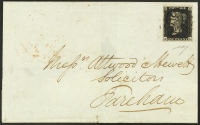 Messrs Attwood & Hewett
Solicitors
Fareham